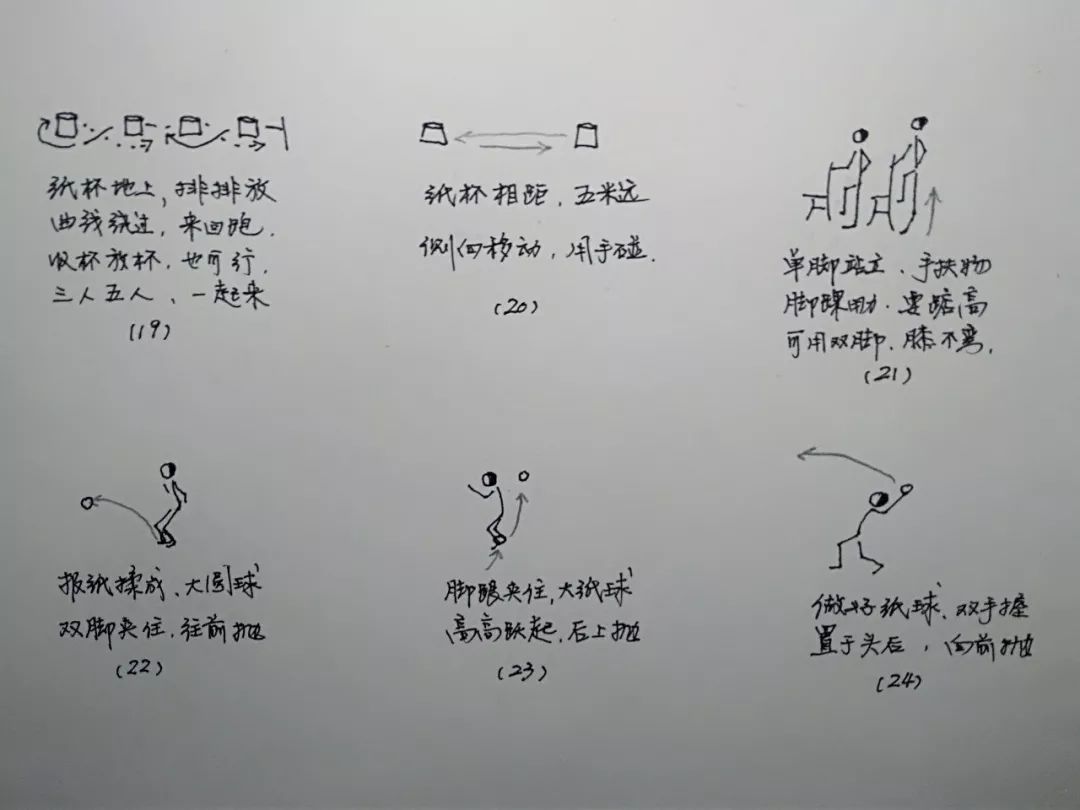 纸杯地上，排排放
曲线绕过，来回跑．
收杯放杯，也可行．
三人五人、一起来
(19)
纸杯相距，五米远
侧向移动，用手碰．
(20)
单脚站立、手扶物
脚踝用力．要踮高
可用双脚、膝不弯．
(21)
报纸揉成、大圆球
双脚夹住，往前抛
(22)
脚跟夹住，大纸球
高高跃起，后上抛
(23)
做好纸球、双手握
置于头后，向前抛
(24)